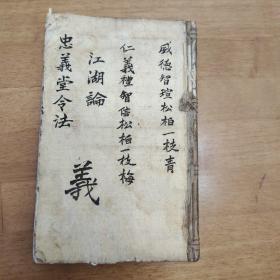 威德智瑄松柏一枝青
仁義禮智信松柏一枝梅
江湖論
義
忠義堂令法